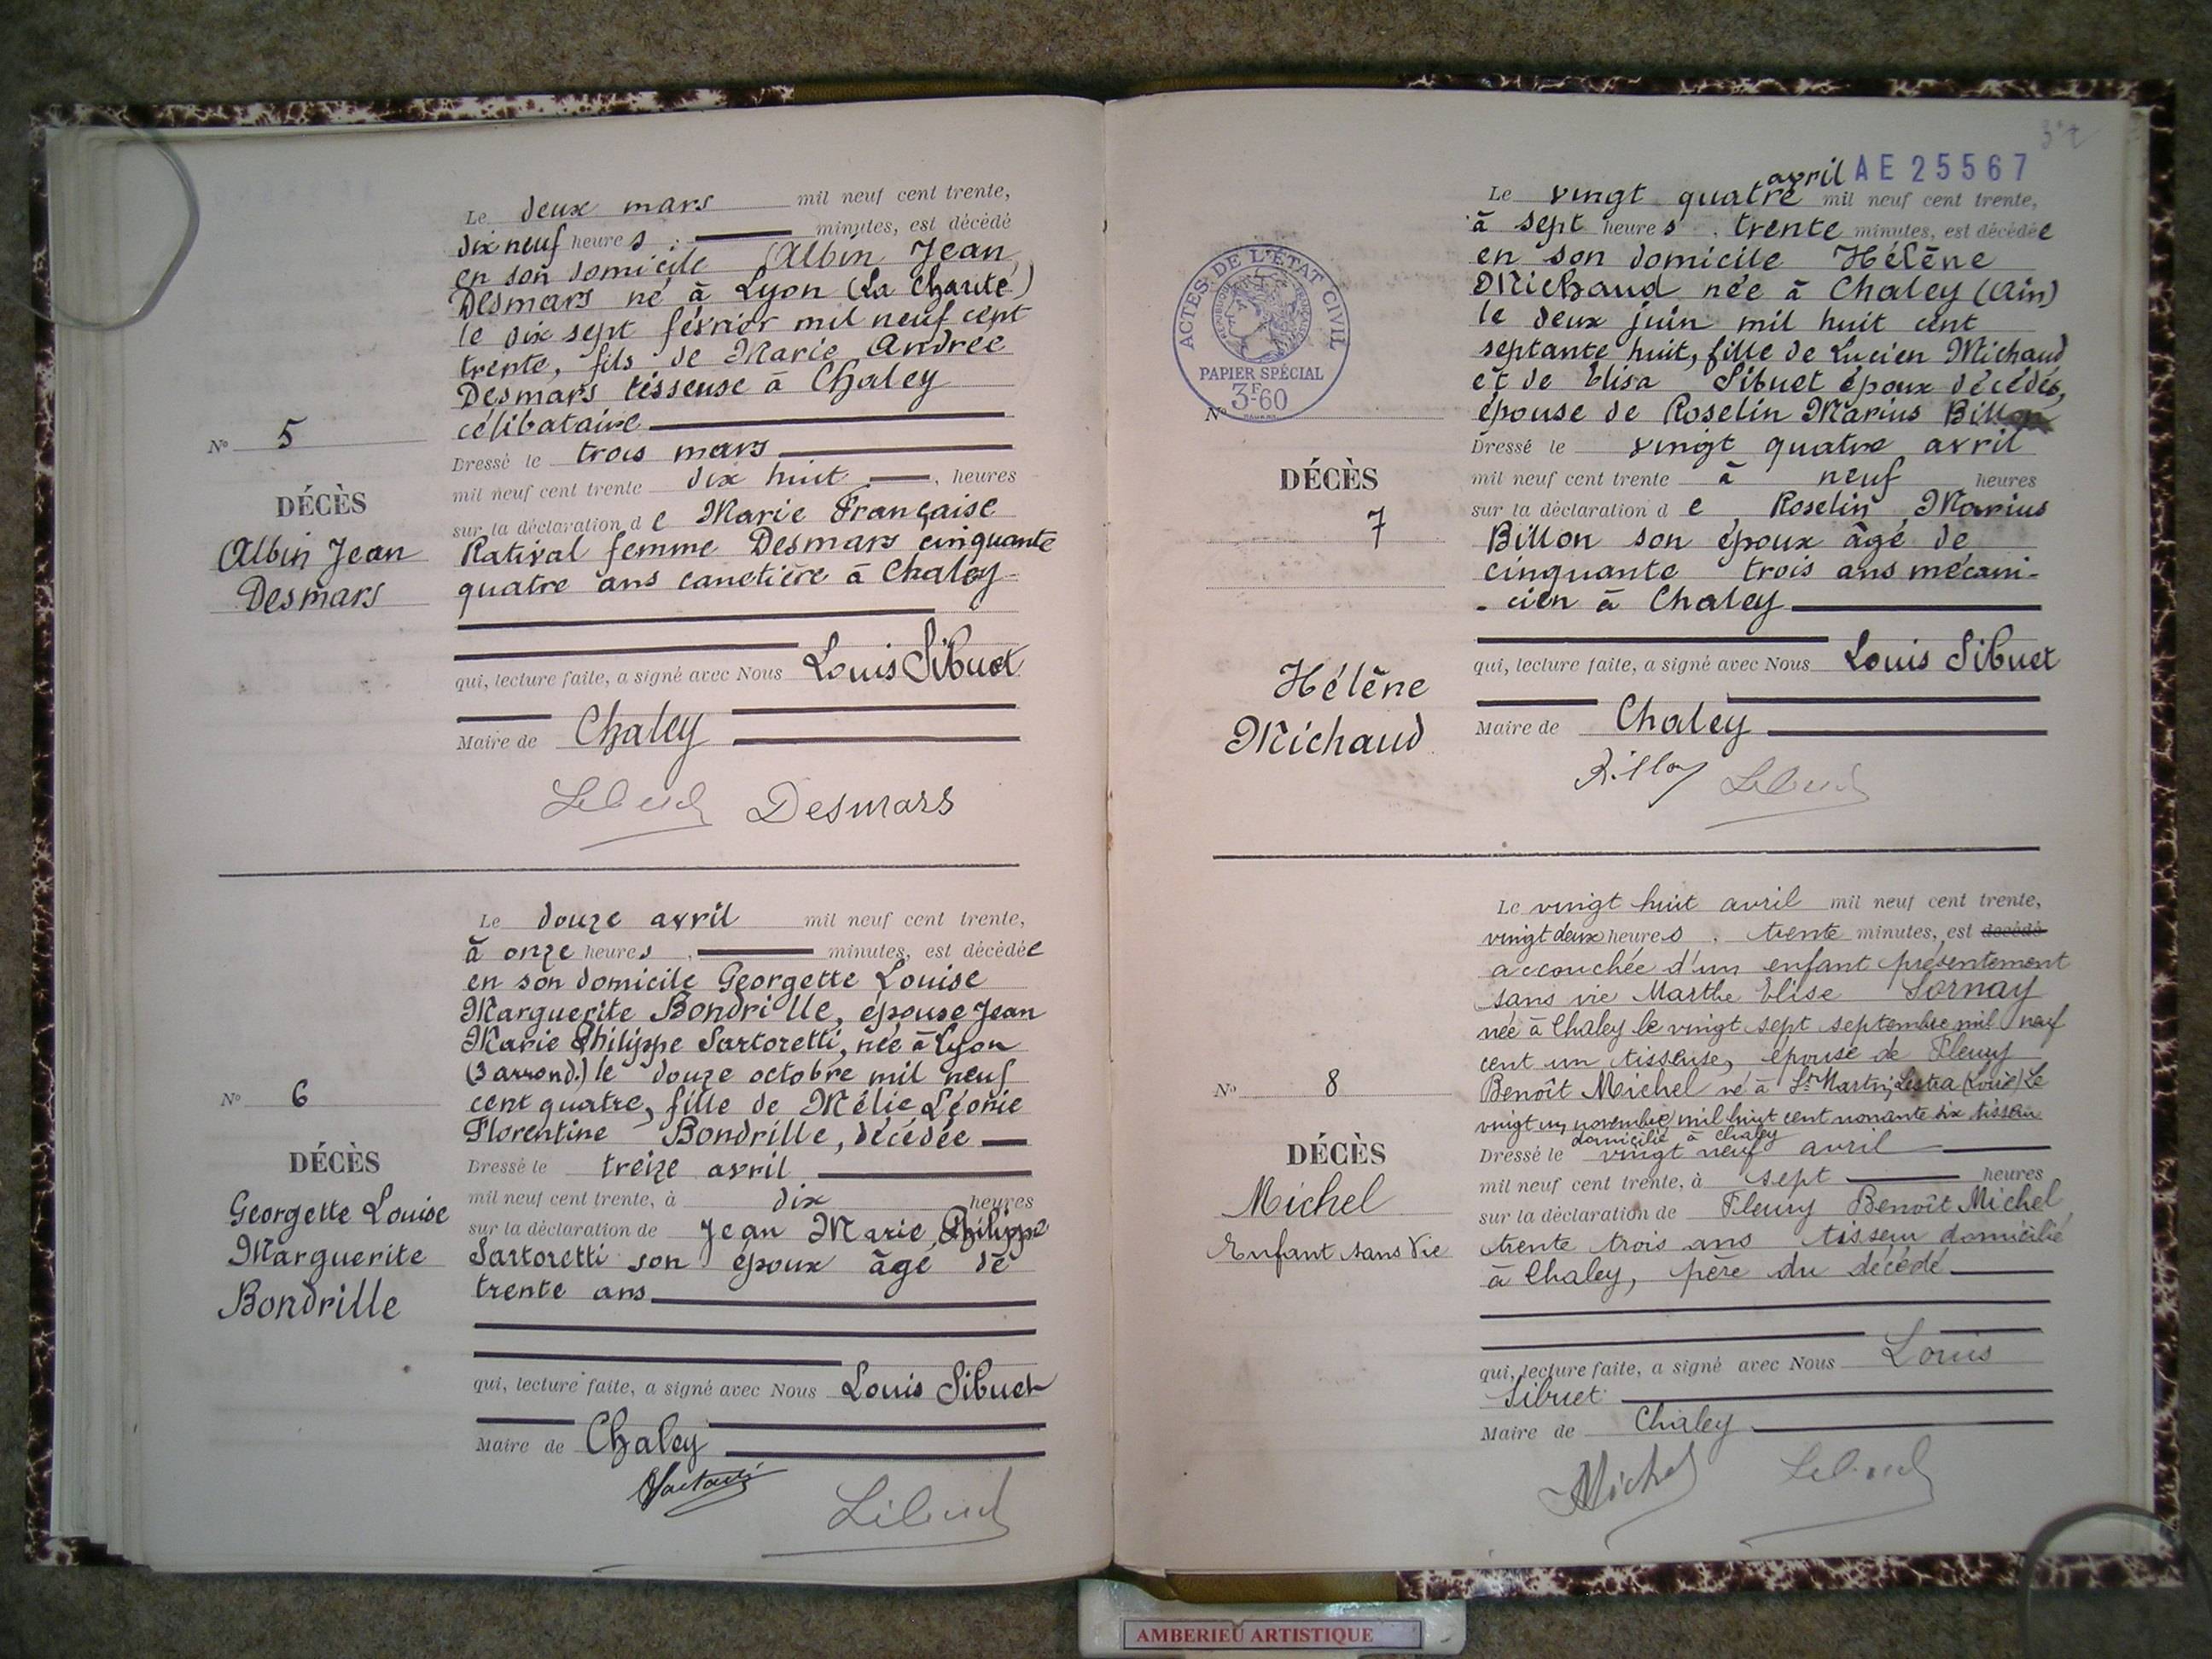 Le deux mars mil neuf cent trente,
dix neuf heures . minutes, est décédé
en son domicile Albin Jean
Desmars né à Lyon (La Charité)
le dix sept février mil neuf cent
trente, fils de Marie Andrée
Desmars tisseuse à Chaley
célibataire
Nº 5
Dressé le trois mars
mil neuf cent trente dix huit , heures
DÉCÈS
Albin Jean
Desmars
sur la déclaration de Marie Française
Rativat femme Desmars cinquante
quatre ans canetière à Chaley
qui, lecture faite, a signé avec Nous Louis Sibuet
Maire de Chaley
Desmars
Le douze avril mil neuf cent trente,
à onze heures , minutes, est décédée
en son domicile Georgette Louise
Marguerite Bondrille, épouse Jean
Marie Philippe Sartoretti, née à Lyon
(3 arrond.) le douze octobre mil neuf
cent quatre, fille de Mélie Léonie
Florentine Bondrille, décédée
Nº 6
DÉCÈS
Georgette Louise
Marguerite
Bondrille
Dressé le treize avril
mil neuf cent trente, à dix heures
sur la déclaration de Jean Marie Philippe
Sartoretti son époux âgé de
trente ans
qui, lecture faite, a signé avec Nous Louis Sibuet
Maire de Chaley
AE 25567
ACTES DE L'ÉTAT CIVIL
RÉPUBLIQUE FRANÇAISE
PAPIER SPÉCIAL
3F60
Nº
avril
Le vingt quatre mil neuf cent trente,
à sept heures . trente minutes, est décédée
en son domicile Hélène
Michaud née à Chaley (Ain)
le deux juin mil huit cent
septante huit, fille de Lucien Michaud
et de Elisa Sibuet époux décédés,
épouse de Roselin Marius Billon
DÉCÈS
7
Hélène
Michaud
Dressé le vingt quatre avril
mil neuf cent trente à neuf heures
sur la déclaration de Roselin Marius
Billon son époux âgé de
cinquante trois ans mécani-
-cien à Chaley
qui, lecture faite, a signé avec Nous Louis Sibuet
Maire de Chaley
Le vingt huit avril mil neuf cent trente,
vingt deux heures . trente minutes, est décédé
accouchée d'un enfant présentement
sans vie Marthe Elise Sornay
née à Chaley le vingt sept septembre mil neuf
cent un tisseuse, épouse de Fleury
Benoît Michel né à St Martin Lestra (Loire) le
vingt un novembre mil huit cent nonante six tisseur
domicilié à Chaley
Nº 8
DÉCÈS
Michel
Enfant sans Vie
Dressé le vingt neuf avril
mil neuf cent trente, à sept heures
sur la déclaration de Fleury Benoît Michel
trente trois ans tisseur domicilié
à Chaley, père du décédé
qui, lecture faite, a signé avec Nous Louis
Sibuet
Maire de Chaley
Michel
AMBERIEU ARTISTIQUE